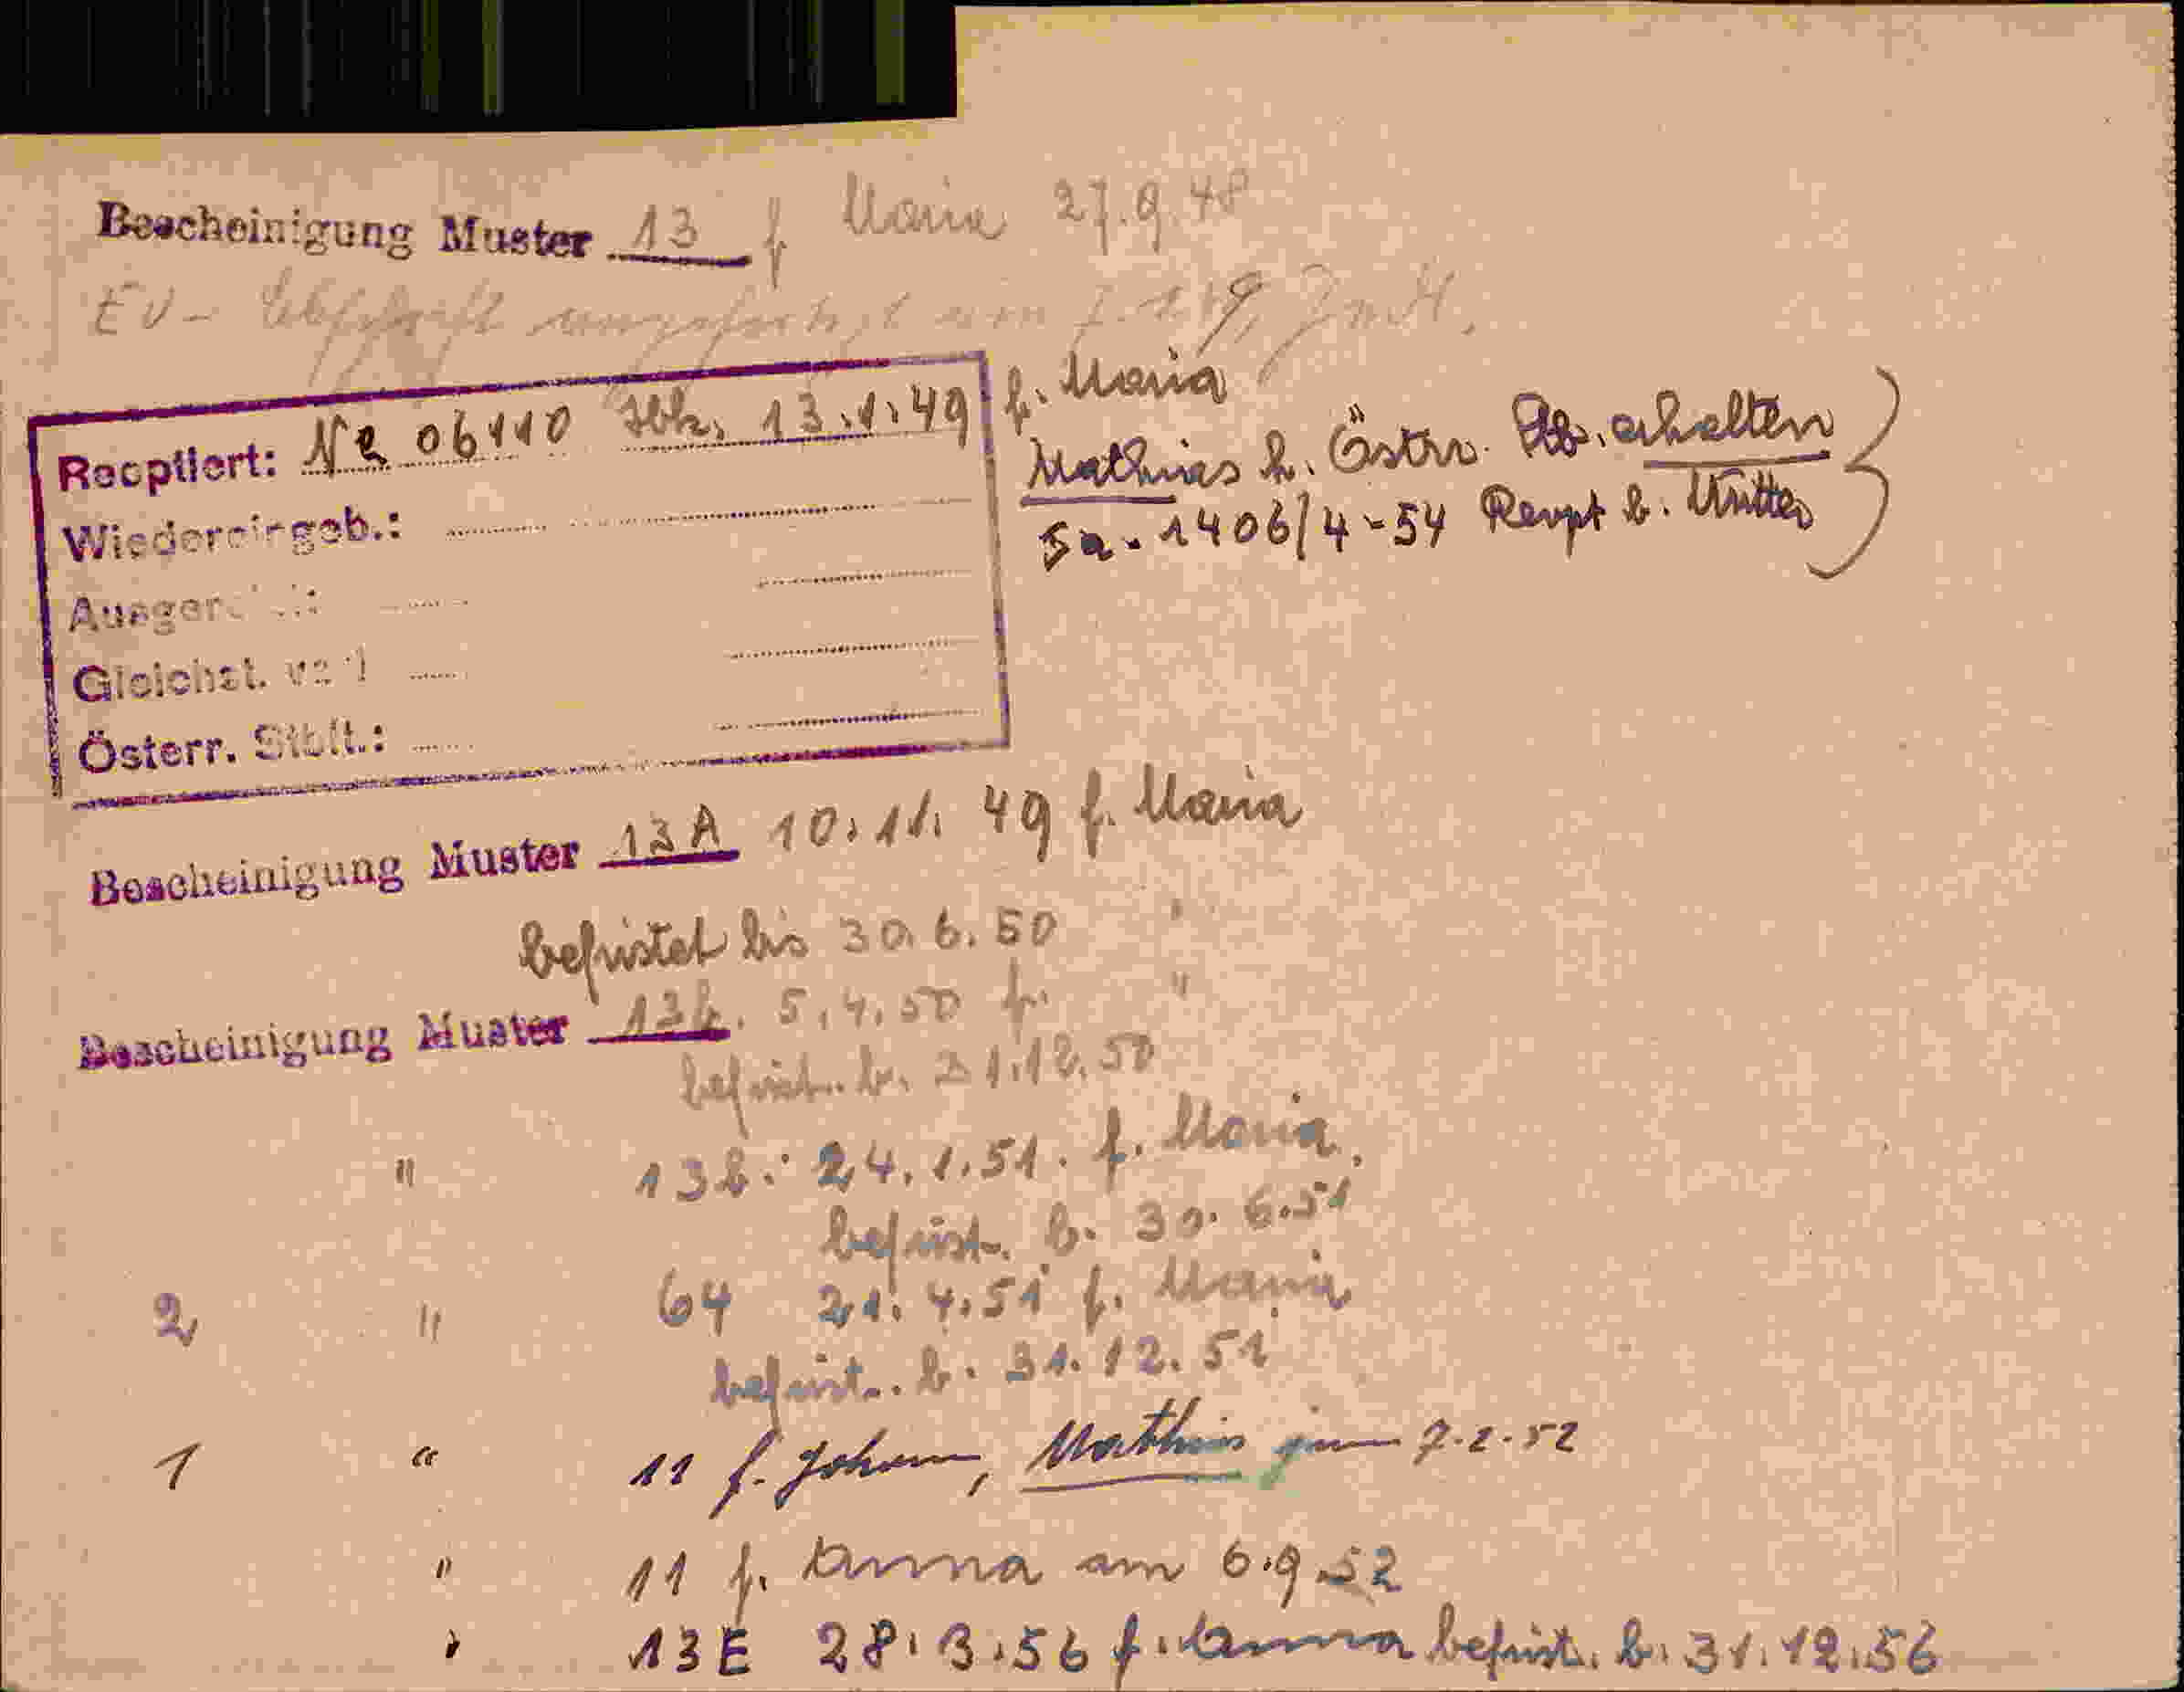 Bescheinigung Muster 13 f Maria 27.9.48
EV-
Reoptiert: Ne 06110 Ibk. 13.1.49 f. Maria
Mathias h. Östr. Stb. erhalten
Wiedereingeb.:
Sa. 1406/4-54 Reopt b. Mutter
Ausger
Gleichst.
Österr. Stblt.:
Bescheinigung Muster 13A 10.11. 49 f. Maria
befristet bis 30.6.50 "
Bescheinigung Muster 13b. 5.4.50 f. "
befrist. b. 31.12.50
" 13b. 24.1.51. f. Maria
befrist. b. 30.6.51
2 " 64 21.4.51 f. Maria
befrist. b. 31.12.51
1 " 11 f. Johann, Mathias jun 7.2.52
" 11 f. Anna am 6.9.52
" 13E 28.3.56 f. Anna befrist. b. 31.12.56